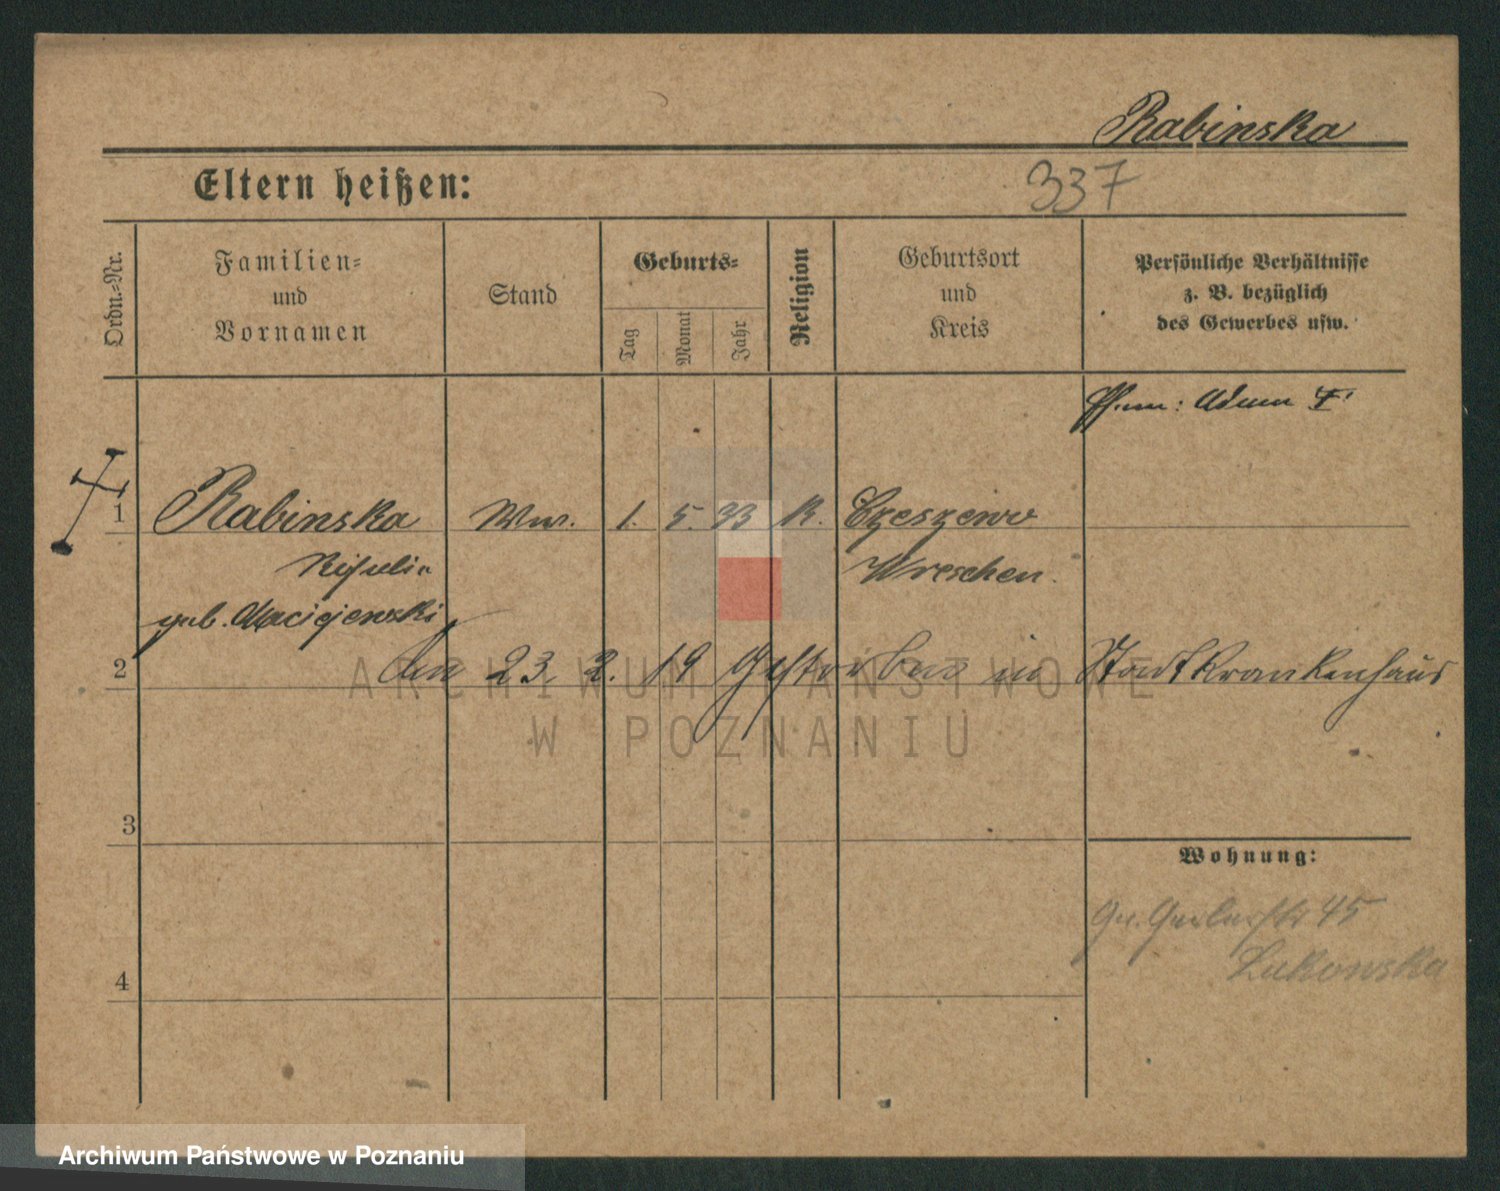 Rabinska
Eltern heißen:
337
Ordn.-Nr.
Familien-
und
Vornamen
Stand
Geburts-
Tag
Monat
Jahr
Religion
Geburtsort
und
Kreis
Persönliche Verhältnisse
z. B. bezüglich
des Gewerbes usw.
Adam
1
Rabinska
Ww.
1.
5.
33
K.
Czeszewo
geb. Maciejewski
Wreschen.
2
Am 23. 2. 19 gestorben in Stadtkrankenhaus
3
Wohnung:
45
Lukowska
4
ARCHIWUM PAŃSTWOWE
W POZNANIU
Archiwum Państwowe w Poznaniu